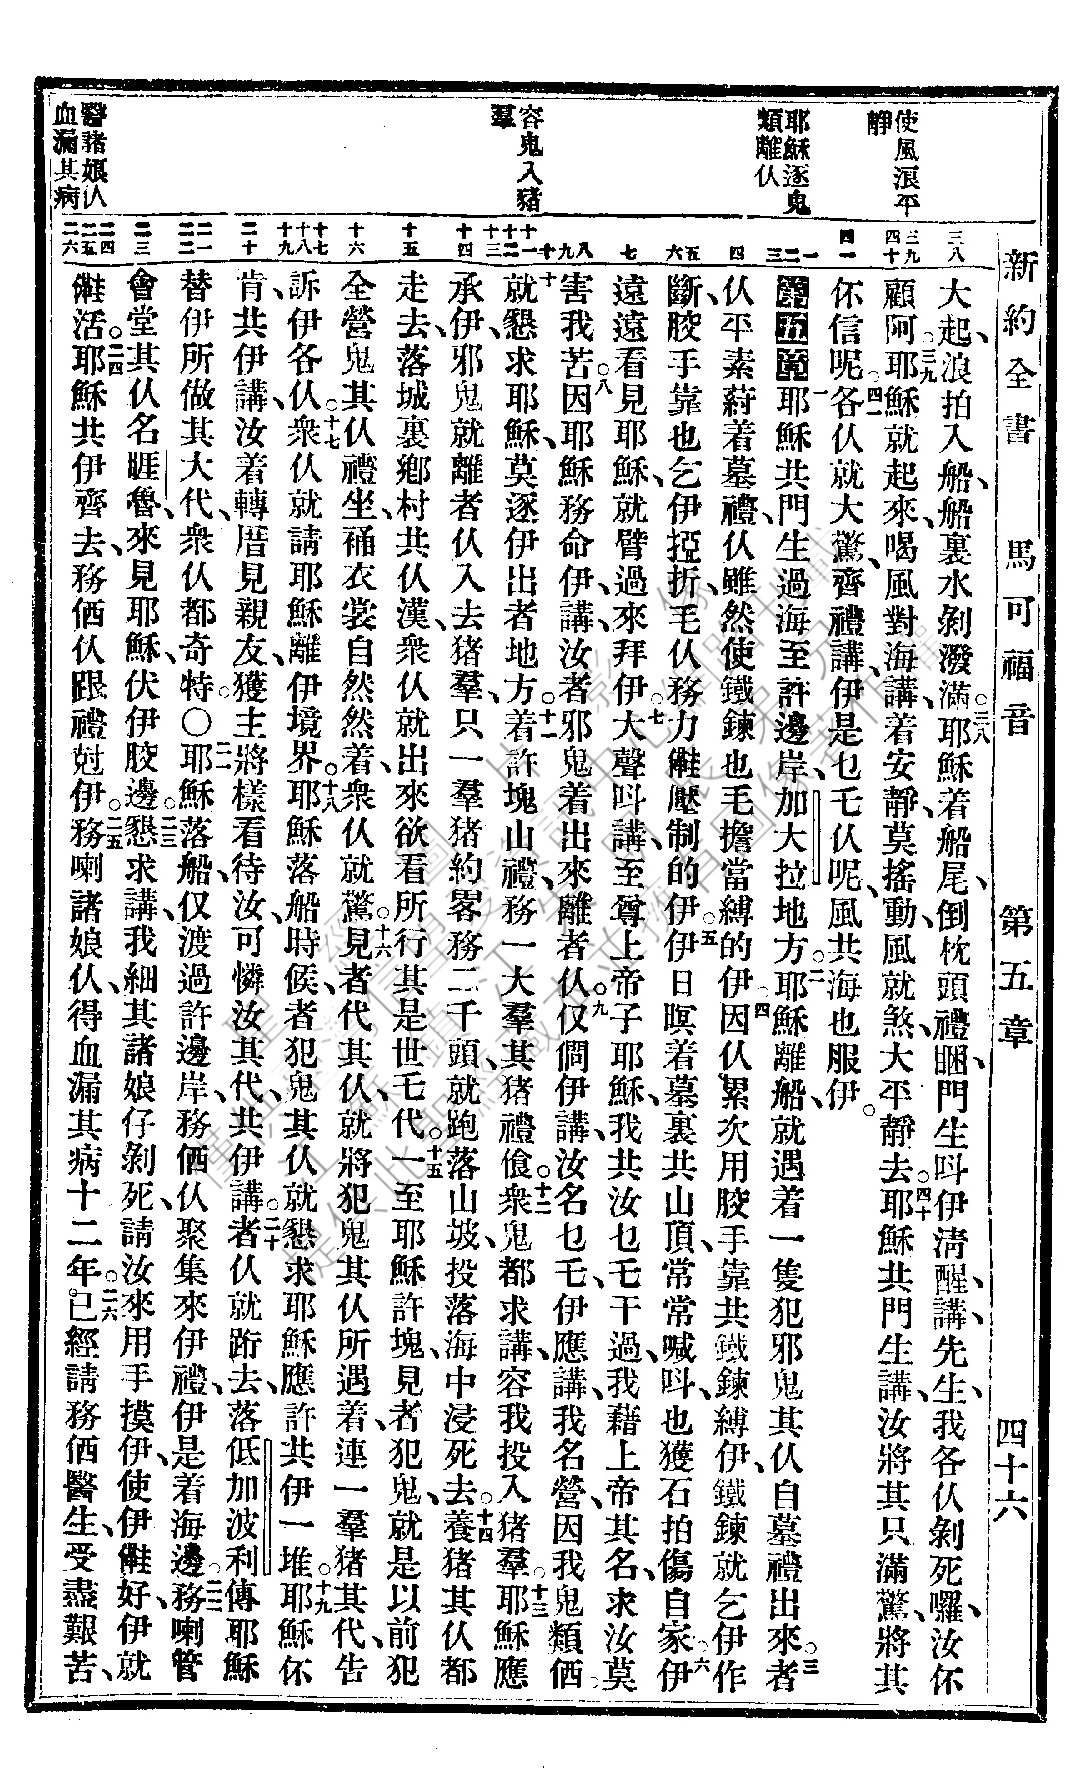 新約全書 馬可福音 第五章 四十六
使風浪平
靜
耶穌逐鬼
類離仈
容鬼入豬
羣
醫諸娘仈
血漏其病
三八
三九
四十
四一
一
二
三
四
五
六
七
八
九
十
十一
十二
十三
十四
十五
十六
十七
十八
十九
二十
二一
二二
二三
二四
二五
二六
大起、浪拍入船、船裏水剝潑滿。三八耶穌着船尾倒枕頭禮睏、門生呌伊淸醒、講、先生、我各仈剝死囉、汝伓
顧阿。三九耶穌就起來、喝風對海講、着安靜莫搖動、風就煞、大平靜去。四十耶穌共門生講、汝將其只滿驚、將其
伓信呢。四一各仈就大驚、齊禮講、伊是乜乇仈呢、風共海也服伊。
第五章一耶穌共門生過海、至許邊岸、加大拉地方。二耶穌離船、就遇着一隻犯邪鬼其仈、自墓禮出來。三者
仈平素蒞着墓禮、仈雖然使鐵鍊、也毛擔當縛的伊。四因仈累次用骹手靠共鐵鍊縛伊、鐵鍊就乞伊作
斷、骹手靠也乞伊挜折、毛仈務力𣍐壓制的伊。五伊日暝着墓裏共山頂、常常喊呌、也獲石拍傷自家。六伊
遠遠看見耶穌、就臂過來拜伊。七大聲呌講、至尊上帝子耶穌、我共汝乜乇干過、我藉上帝其名、求汝莫
害我苦。八因耶穌務命伊講、汝者邪鬼着出來、離者仈。九僅問伊講、汝名乜乇、伊應講、我名營、因我鬼類価。
十就懇求耶穌、莫逐伊出者地方。十一着許塊山禮、務一大羣其猪禮飡。十二衆鬼都求講、容我投入猪羣。十三耶穌應
承伊、邪鬼就離者仈、入去猪羣、只一羣猪約畧務二千頭、就跑落山坡、投落海中浸死去。十四養猪其仈都
走去、落城裏鄕村共仈漢、衆仈就出來、欲看所行其是世乇代。十五一至耶穌許塊、見者犯鬼、就是以前犯
全營鬼其仈禮坐、䘼衣裳、自然然着、衆仈就驚。十六見者代其仈、就將犯鬼其仈所遇着、連一羣猪其代、告
訴伊各仈。十七衆仈就請耶穌離伊境界。十八耶穌落船時候、者犯鬼其仈、就懇求耶穌、應許共伊一堆。十九耶穌伓
肯、共伊講、汝着轉厝見親友、獲主將樣看待汝、可憐汝其代、共伊講。二十者仈就跡去、落低加波利、傳耶穌
替伊所做其大代、衆仈都奇特。〇二一耶穌落船、僅渡過許邊岸、務価仈聚集來伊禮、伊是着海邊。二二務喇管
會堂其仈、名睚魯、來見耶穌、伏伊骹邊。二三懇求講、我細其諸娘仔剝死、請汝來用手摸伊、使伊𣍐好、伊就
𣍐活。二四耶穌共伊齊去、務価仈跟禮尅伊。二五務喇諸娘仈、得血漏其病十二年。二六已經請務価醫生、受盡艱苦、